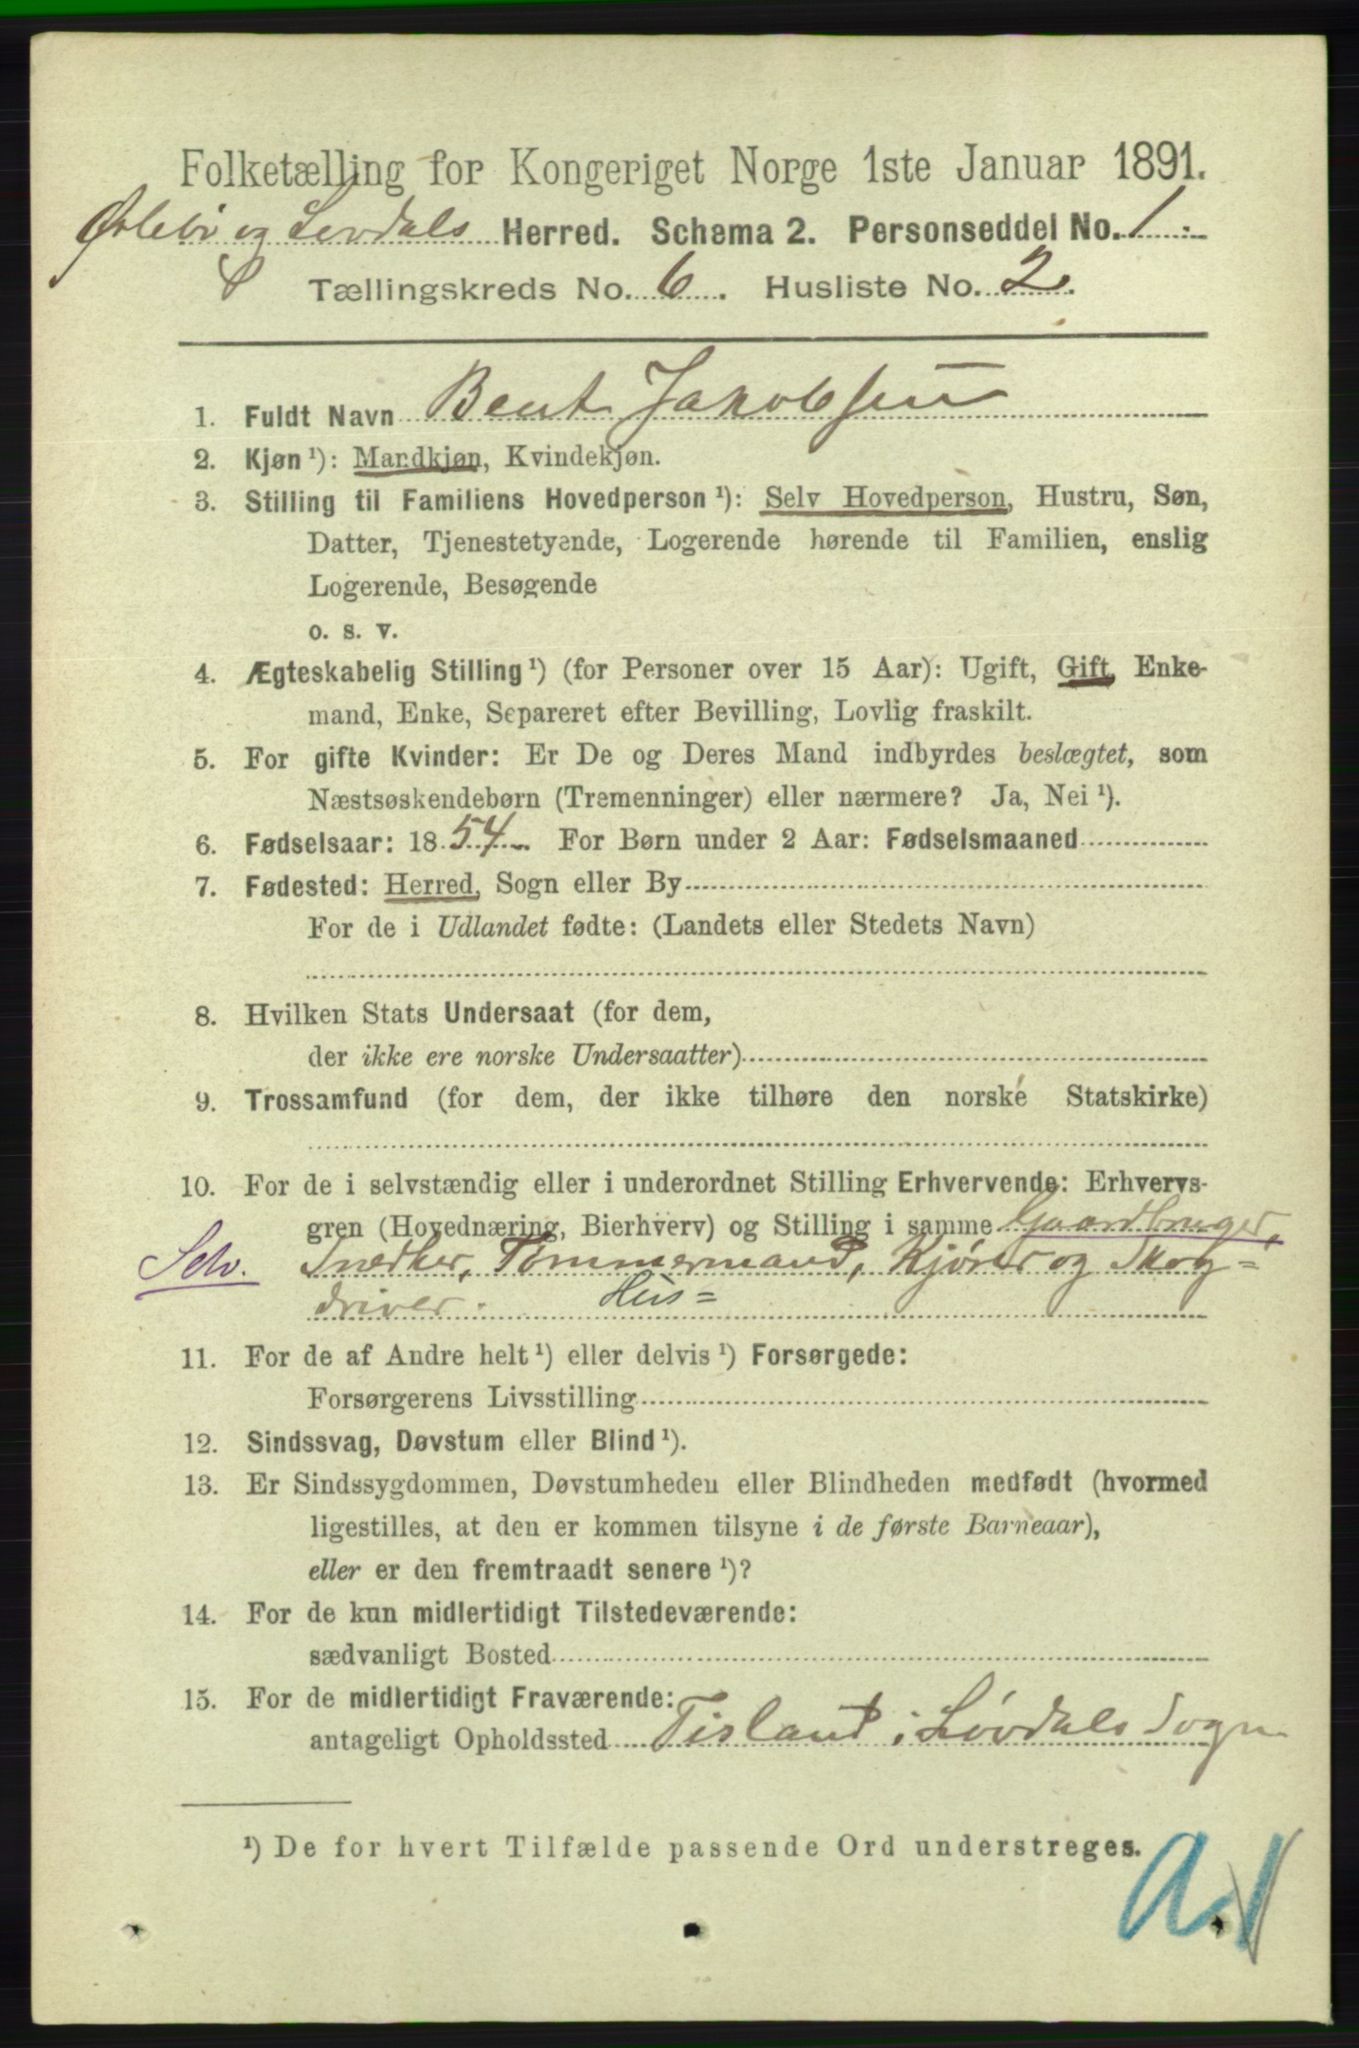 Folketælling for Kongeriget Norge 1ste Januar 1891.
Øslebø og Løvdals Herred. Schema 2. Personseddel No. 1.
Tællingskreds No. 6. Husliste No. 2.
1. Fuldt Navn Bent Jakobsen
2. Kjøn ¹): Mandkjøn, Kvindekjøn.
3. Stilling til Familiens Hovedperson ¹): Selv Hovedperson, Hustru, Søn,
Datter, Tjenestetyende, Logerende hørende til Familien, enslig
Logerende, Besøgende
o. s. v.
4. Ægteskabelig Stilling ¹) (for Personer over 15 Aar): Ugift, Gift, Enke-
mand, Enke, Separeret efter Bevilling, Lovlig fraskilt.
5. For gifte Kvinder: Er De og Deres Mand indbyrdes beslægtet, som
Næstsøskendebørn (Tremenninger) eller nærmere? Ja, Nei ¹).
6. Fødselsaar: 1854. For Børn under 2 Aar: Fødselsmaaned
7. Fødested: Herred, Sogn eller By
For de i Udlandet fødte: (Landets eller Stedets Navn)
8. Hvilken Stats Undersaat (for dem,
der ikke ere norske Undersaatter)
9. Trossamfund (for dem, der ikke tilhøre den norske Statskirke)
10. For de i selvstændig eller i underordnet Stilling Erhvervende: Erhvervs-
gren (Hovednæring, Bierhverv) og Stilling i samme Gaardbruger,
Selv. Snedker, Tømmermand, Kjører og Skog=
driver. Hus=
11. For de af Andre helt ¹) eller delvis ¹) Forsørgede:
Forsørgerens Livsstilling
12. Sindssvag, Døvstum eller Blind ¹).
13. Er Sindssygdommen, Døvstumheden eller Blindheden medfødt (hvormed
ligestilles, at den er kommen tilsyne i de første Barneaar),
eller er den fremtraadt senere ¹)?
14. For de kun midlertidigt Tilstedeværende:
sædvanligt Bosted
15. For de midlertidigt Fraværende:
antageligt Opholdssted Tisland i Løvdals Sogn
¹) De for hvert Tilfælde passende Ord understreges.